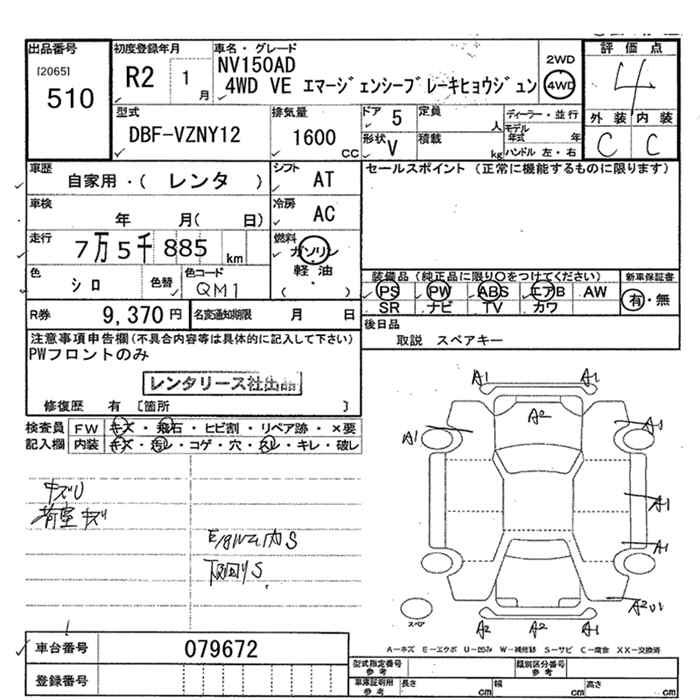 出品番号
[2065]
510
初度登録年月
R2 1月
車名・グレード
NV150AD
4WD VE エマージェンシーブレーキヒョウジュン
2WD
4WD
評価点
4
外装 内装
C C
型式
DBF-VZNY12
排気量
1600 CC
ドア 5
形状 V
定員 人
積載 kg
ディーラー・並行
モデル年式 年
ハンドル 左・右
車歴
自家用・( レンタ )
シフト AT
車検
年 月( 日)
冷房 AC
走行 7万5千885 km
燃料 ガソリン
軽油
( )
色 シロ 色替
色コード QM1
セールスポイント (正常に機能するものに限ります)
装備品 (純正品に限り○をつけてください)
PS PW ABS エアB AW
SR ナビ TV カワ
新車保証書
有・無
R券 9,370円
名変通知期限 月 日
後日品
取説 スペアキー
注意事項申告欄(不具合内容等は具体的に記入して下さい)
PWフロントのみ
レンタリース社出品
修復歴 有 [箇所 ]
検査員記入欄
FW キズ・飛石・ヒビ割・リペア跡・×要
内装 キズ・汚レ・コゲ・穴・スレ・キレ・破レ
キズU
荷室キズ
下回りS
A1 A1
A2
A1
A1
A1
A2 A2 A1
スペア
A-キズ E-エクボ U-凹み W-補修跡 S-サビ C-腐食 XX-交換済
車台番号 079672
登録番号
型式指定番号 参考
類別区分番号 参考
車庫証明用 参考
長さ cm 幅 cm 高さ cm